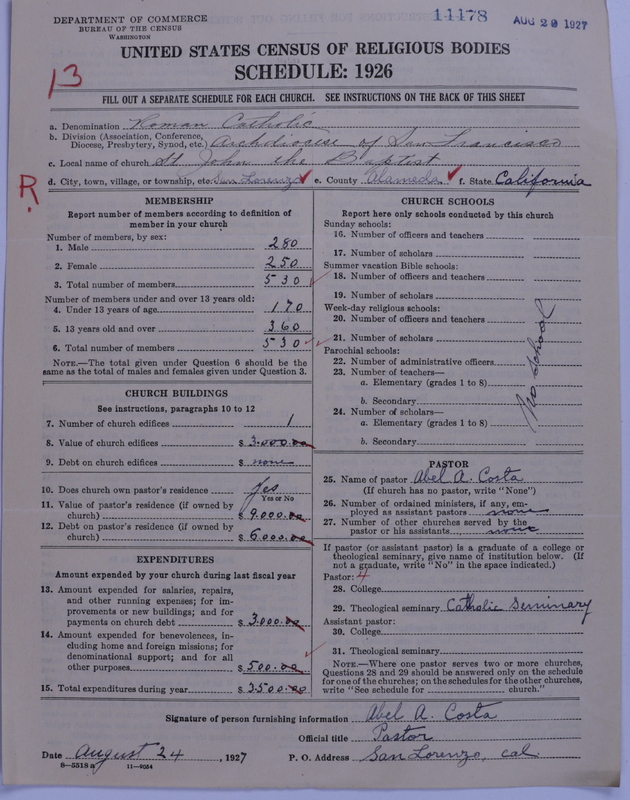 DEPARTMENT OF COMMERCE
BUREAU OF THE CENSUS
WASHINGTON
11178
AUG 29 1927
UNITED STATES CENSUS OF RELIGIOUS BODIES
SCHEDULE: 1926
13
FILL OUT A SEPARATE SCHEDULE FOR EACH CHURCH. SEE INSTRUCTIONS ON THE BACK OF THIS SHEET
a. Denomination Roman Catholic
b. Division (Association, Conference, Diocese, Presbytery, Synod, etc.) Archdiocese of San Francisco
c. Local name of church St John the Baptist
d. City, town, village, or township, etc. San Lorenzo e. County Alameda f. State California
R
MEMBERSHIP
Report number of members according to definition of
member in your church
Number of members, by sex:
1. Male 280
2. Female 250
3. Total number of members 530
Number of members under and over 13 years old:
4. Under 13 years of age 170
5. 13 years old and over 360
6. Total number of members 530
NOTE.—The total given under Question 6 should be
same as the total of males and females given under Question 3.
CHURCH BUILDINGS
See instructions, paragraphs 10 to 12
7. Number of church edifices 1
8. Value of church edifices $ 3.000.00
9. Debt on church edifices $ none
10. Does church own pastor's residence yes
Yes or No
11. Value of pastor's residence (if owned by
church) $ 9.000.00
12. Debt on pastor's residence (if owned by
church) $ 6.000.00
EXPENDITURES
Amount expended by your church during last fiscal year
13. Amount expended for salaries, repairs,
and other running expenses; for im-
provements or new buildings; and for
payments on church debt $ 3.000.00
14. Amount expended for benevolences, in-
cluding home and foreign missions; for
denominational support; and for all
other purposes $ 500.00
15. Total expenditures during year $ 3500.00
CHURCH SCHOOLS
Report here only schools conducted by this church
Sunday schools:
16. Number of officers and teachers
17. Number of scholars
Summer vacation Bible schools:
18. Number of officers and teachers
19. Number of scholars
Week-day religious schools:
20. Number of officers and teachers
21. Number of scholars
Parochial schools:
22. Number of administrative officers
23. Number of teachers—
a. Elementary (grades 1 to 8)
b. Secondary
24. Number of scholars—
a. Elementary (grades 1 to 8)
b. Secondary
No School
PASTOR
25. Name of pastor Abel A. Costa
(If church has no pastor, write "None")
26. Number of ordained ministers, if any, em-
ployed as assistant pastors none
27. Number of other churches served by the
pastor or his assistants none
If pastor (or assistant pastor) is a graduate of a college or
theological seminary, give name of institution below. (If
not a graduate, write "No" in the space indicated.)
Pastor: 4
28. College
29. Theological seminary Catholic Seminary
Assistant pastor:
30. College
31. Theological seminary
NOTE.—Where one pastor serves two or more churches,
Questions 28 and 29 should be answered only on the schedule
for one of the churches; on the schedules for the other churches,
write "See schedule for church."
Signature of person furnishing information Abel A. Costa
Official title Pastor
Date August 24, 1927 P. O. Address San Lorenzo, Cal
8—5318 a 11—9054